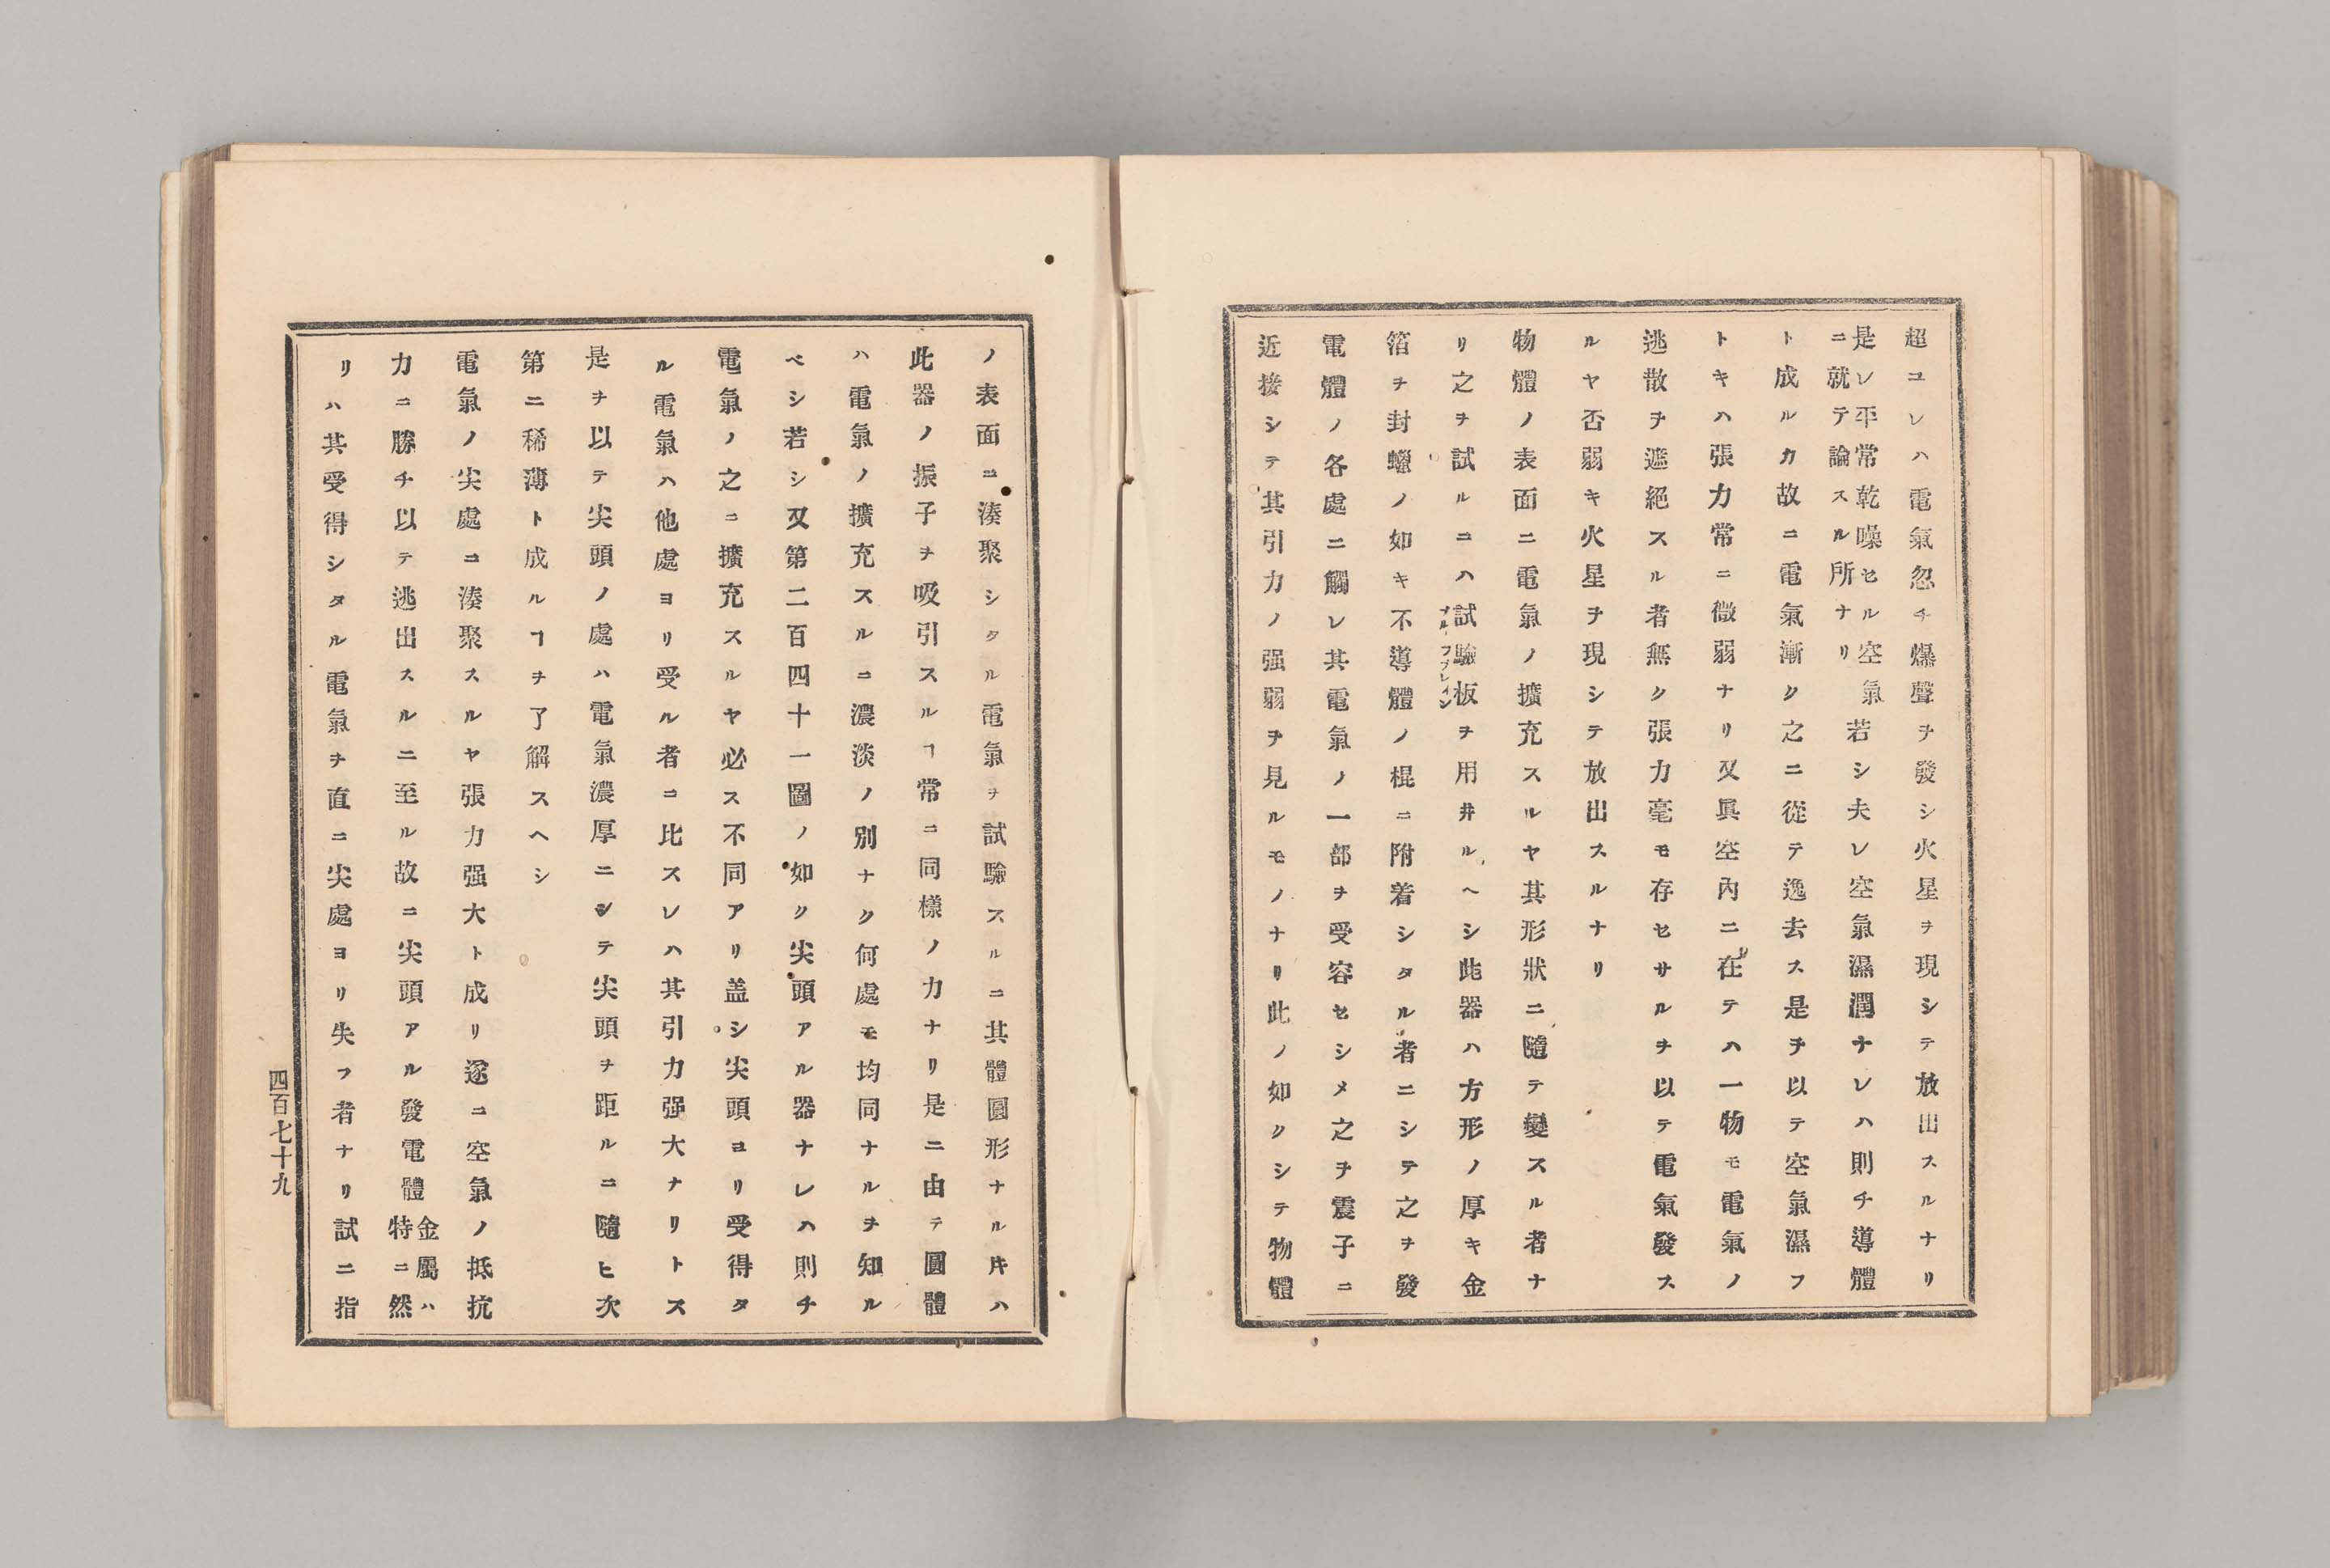 超ユレハ電氣忽チ爆聲ヲ發シ火星ヲ現シテ放出スルナリ
是レ平常乾噪セル空氣
ニ就テ論スル所ナリ
若シ夫レ空氣濕潤ナレハ則チ導體
ト成ルカ故ニ電氣漸ク之ニ從テ逸去ス是ヲ以テ空氣濕フ
トキハ張力常ニ微弱ナリ又眞空內ニ在テハ一物モ電氣ノ
逃散ヲ遮絕スル者無ク張力毫モ存セサルヲ以テ電氣發ス
ルヤ否弱キ火星ヲ現シテ放出スルナリ
物體ノ表面ニ電氣ノ擴充スルヤ其形狀ニ隨テ變スル者ナ
リ之ヲ試ルニハ試驗板ヲ用井ルヘシ此器ハ方形ノ厚キ金
箔ヲ封蠟ノ如キ不導體ノ棍ニ附着シタル者ニシテ之ヲ發
電體ノ各處ニ觸レ其電氣ノ一部ヲ受容セシメ之ヲ震子ニ
近接シテ其引力ノ强弱ヲ見ルモノナリ此ノ如クシテ物體
ノ表面ニ湊聚シタル電氣ヲ試驗スルニ其體圓形ナル片ハ
此器ノ振子ヲ吸引スルヿ常ニ同樣ノ力ナリ是ニ由テ圓體
ハ電氣ノ擴充スルニ濃淡ノ別ナク何處モ均同ナルヲ知ル
ベシ若シ又第二百四十一圖ノ如ク尖頭アル器ナレハ則チ
電氣ノ之ニ擴充スルヤ必ス不同アリ盖シ尖頭ヨリ受得タ
ル電氣ハ他處ヨリ受ル者ニ比スレハ其引力强大ナリトス
是ヲ以テ尖頭ノ處ハ電氣濃厚ニシテ尖頭ヲ距ルニ隨ヒ次
第ニ稀薄ト成ルヿヲ了解スヘシ
電氣ノ尖處ニ湊聚スルヤ張力强大ト成リ遂ニ空氣ノ抵抗
力ニ勝チ以テ逃出スルニ至ル故ニ尖頭アル發電體
金屬ハ
特ニ然
リハ其受得シタル電氣ヲ直ニ尖處ヨリ失フ者ナリ試ニ指
四百七十九